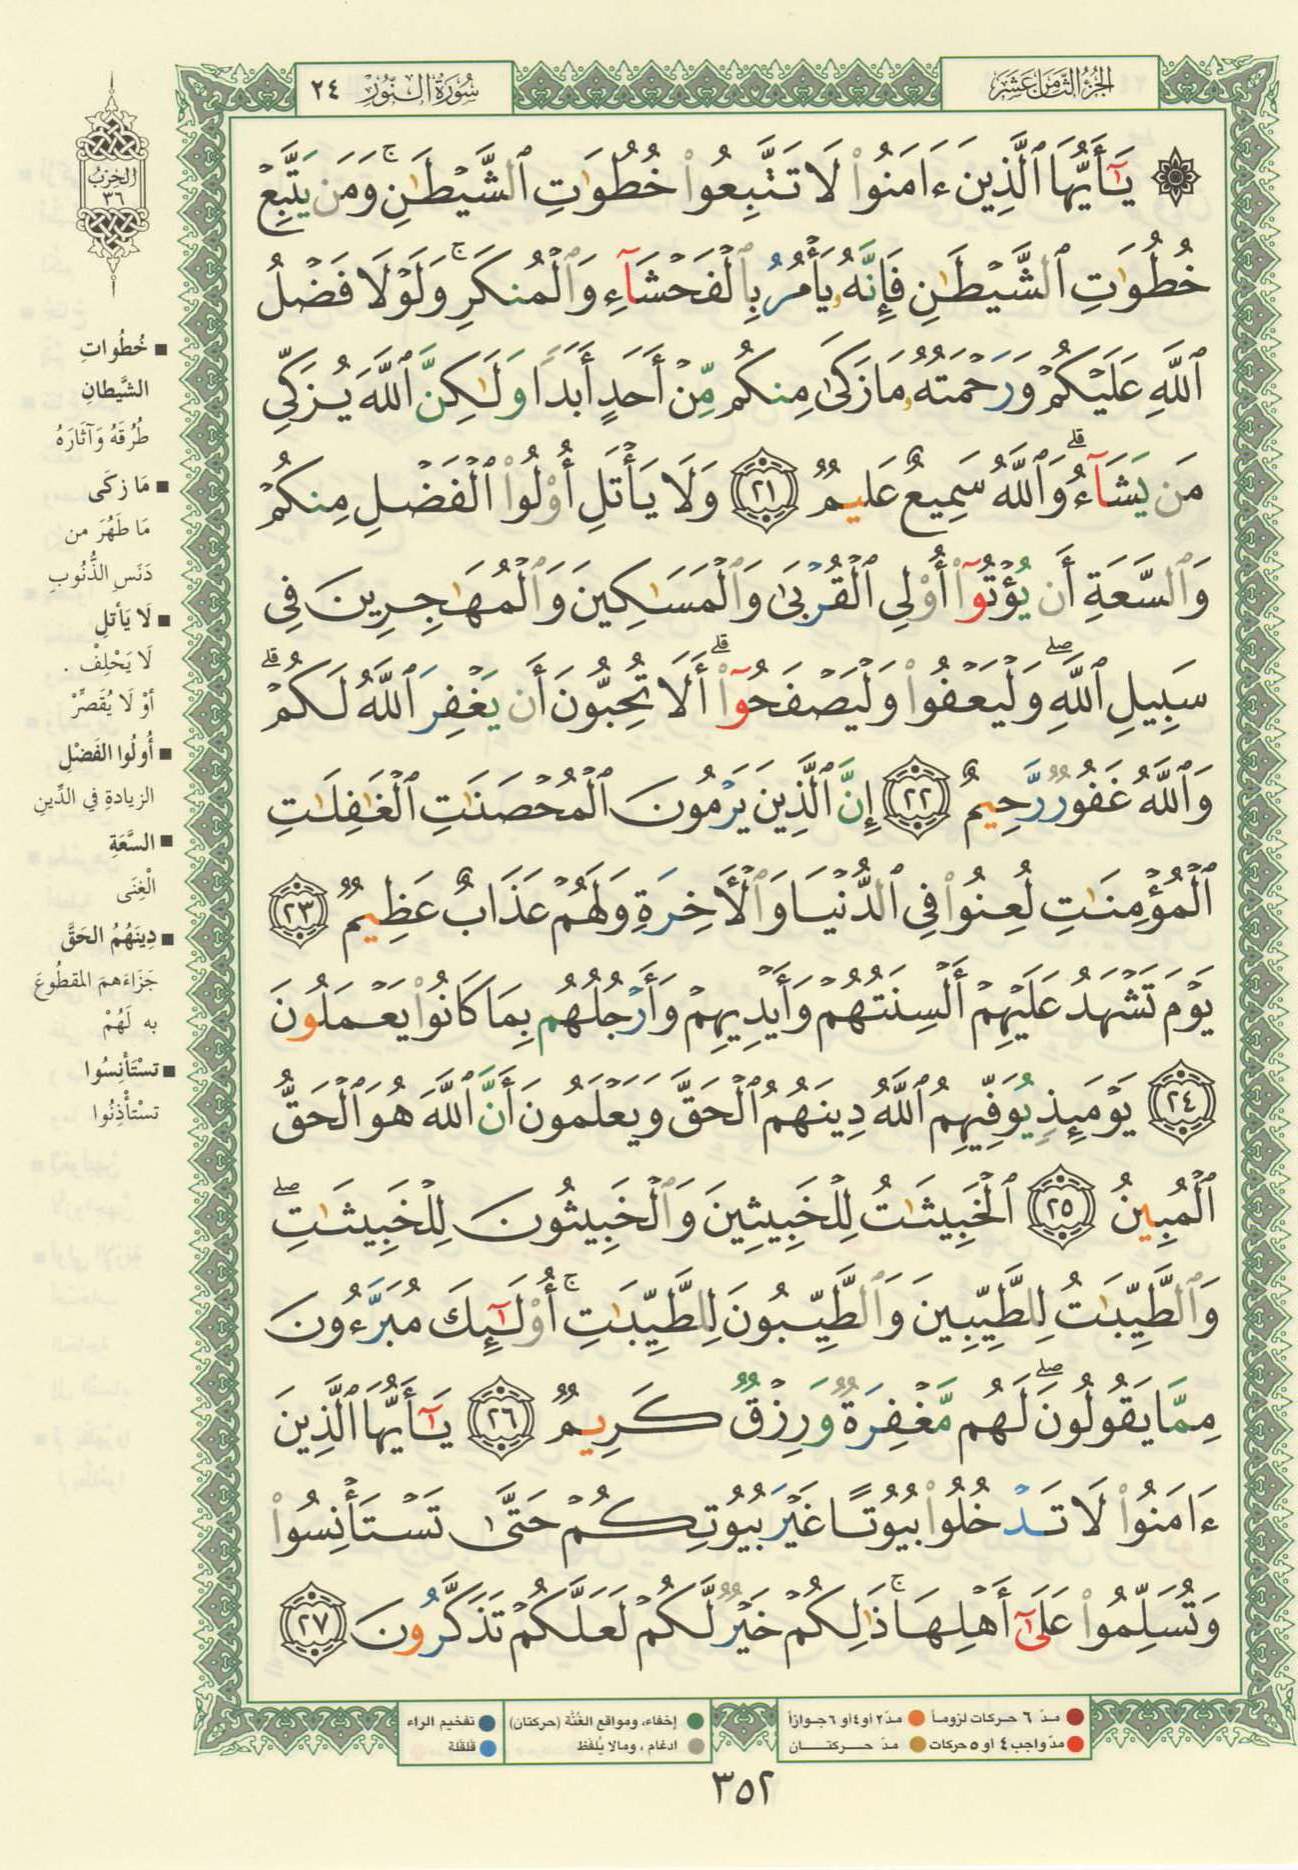 الجزء الثامن عشر
سورة النور ٢٤
۞ يَـٰٓأَيُّهَا ٱلَّذِينَ ءَامَنُوا۟ لَا تَتَّبِعُوا۟ خُطُوَٰتِ ٱلشَّيْطَـٰنِ ۚ وَمَن يَتَّبِعْ
خُطُوَٰتِ ٱلشَّيْطَـٰنِ فَإِنَّهُۥ يَأْمُرُ بِٱلْفَحْشَآءِ وَٱلْمُنكَرِ ۚ وَلَوْلَا فَضْلُ
ٱللَّهِ عَلَيْكُمْ وَرَحْمَتُهُۥ مَا زَكَىٰ مِنكُم مِّنْ أَحَدٍ أَبَدًا وَلَـٰكِنَّ ٱللَّهَ يُزَكِّى
مَن يَشَآءُ ۗ وَٱللَّهُ سَمِيعٌ عَلِيمٌ ٢١ وَلَا يَأْتَلِ أُو۟لُوا۟ ٱلْفَضْلِ مِنكُمْ
وَٱلسَّعَةِ أَن يُؤْتُوٓا۟ أُو۟لِى ٱلْقُرْبَىٰ وَٱلْمَسَـٰكِينَ وَٱلْمُهَـٰجِرِينَ فِى
سَبِيلِ ٱللَّهِ ۖ وَلْيَعْفُوا۟ وَلْيَصْفَحُوٓا۟ ۗ أَلَا تُحِبُّونَ أَن يَغْفِرَ ٱللَّهُ لَكُمْ ۗ
وَٱللَّهُ غَفُورٌ رَّحِيمٌ ٢٢ إِنَّ ٱلَّذِينَ يَرْمُونَ ٱلْمُحْصَنَـٰتِ ٱلْغَـٰفِلَـٰتِ
ٱلْمُؤْمِنَـٰتِ لُعِنُوا۟ فِى ٱلدُّنْيَا وَٱلْـَٔاخِرَةِ وَلَهُمْ عَذَابٌ عَظِيمٌ ٢٣
يَوْمَ تَشْهَدُ عَلَيْهِمْ أَلْسِنَتُهُمْ وَأَيْدِيهِمْ وَأَرْجُلُهُم بِمَا كَانُوا۟ يَعْمَلُونَ
٢٤ يَوْمَئِذٍ يُوَفِّيهِمُ ٱللَّهُ دِينَهُمُ ٱلْحَقَّ وَيَعْلَمُونَ أَنَّ ٱللَّهَ هُوَ ٱلْحَقُّ
ٱلْمُبِينُ ٢٥ ٱلْخَبِيثَـٰتُ لِلْخَبِيثِينَ وَٱلْخَبِيثُونَ لِلْخَبِيثَـٰتِ ۖ
وَٱلطَّيِّبَـٰتُ لِلطَّيِّبِينَ وَٱلطَّيِّبُونَ لِلطَّيِّبَـٰتِ ۚ أُو۟لَـٰٓئِكَ مُبَرَّءُونَ
مِمَّا يَقُولُونَ ۖ لَهُم مَّغْفِرَةٌ وَرِزْقٌ كَرِيمٌ ٢٦ يَـٰٓأَيُّهَا ٱلَّذِينَ
ءَامَنُوا۟ لَا تَدْخُلُوا۟ بُيُوتًا غَيْرَ بُيُوتِكُمْ حَتَّىٰ تَسْتَأْنِسُوا۟
وَتُسَلِّمُوا۟ عَلَىٰٓ أَهْلِهَا ۚ ذَٰلِكُمْ خَيْرٌ لَّكُمْ لَعَلَّكُمْ تَذَكَّرُونَ ٢٧
الحزب
٣٦
■ خُطُواتِ
الشَّيطانِ
طُرُقَهُ وَآثَارَهُ
■ مَا زكَى
مَا طَهُرَ من
دَنَسِ الذُّنُوبِ
■ لَا يَأتلِ
لَا يَحْلِفْ .
أوْ لَا يُقَصِّرْ
■ أُولُوا الفَضْلِ
الزيادةِ في الدِّينِ
■ السَّعَةِ
الْغِنَى
■ دِينَهُمُ الحَقَّ
جَزَاءَهمَ المقطُوعَ
به لَهُمْ
■ تسْتَأْنِسُوا
تسْتَأْذِنُوا
مدّ ٦ حركات لزوماً ● مدّ ٢ أو ٤ أو ٦ جوازاً
مدّ واجب ٤ أو ٥ حركات ● مدّ حركتان
إخفاء، ومواقع الغُنَّة (حركتان) ● تفخيم الراء
ادغام ، ومالا يُلفَظ ● قلقلة
٣٥٢